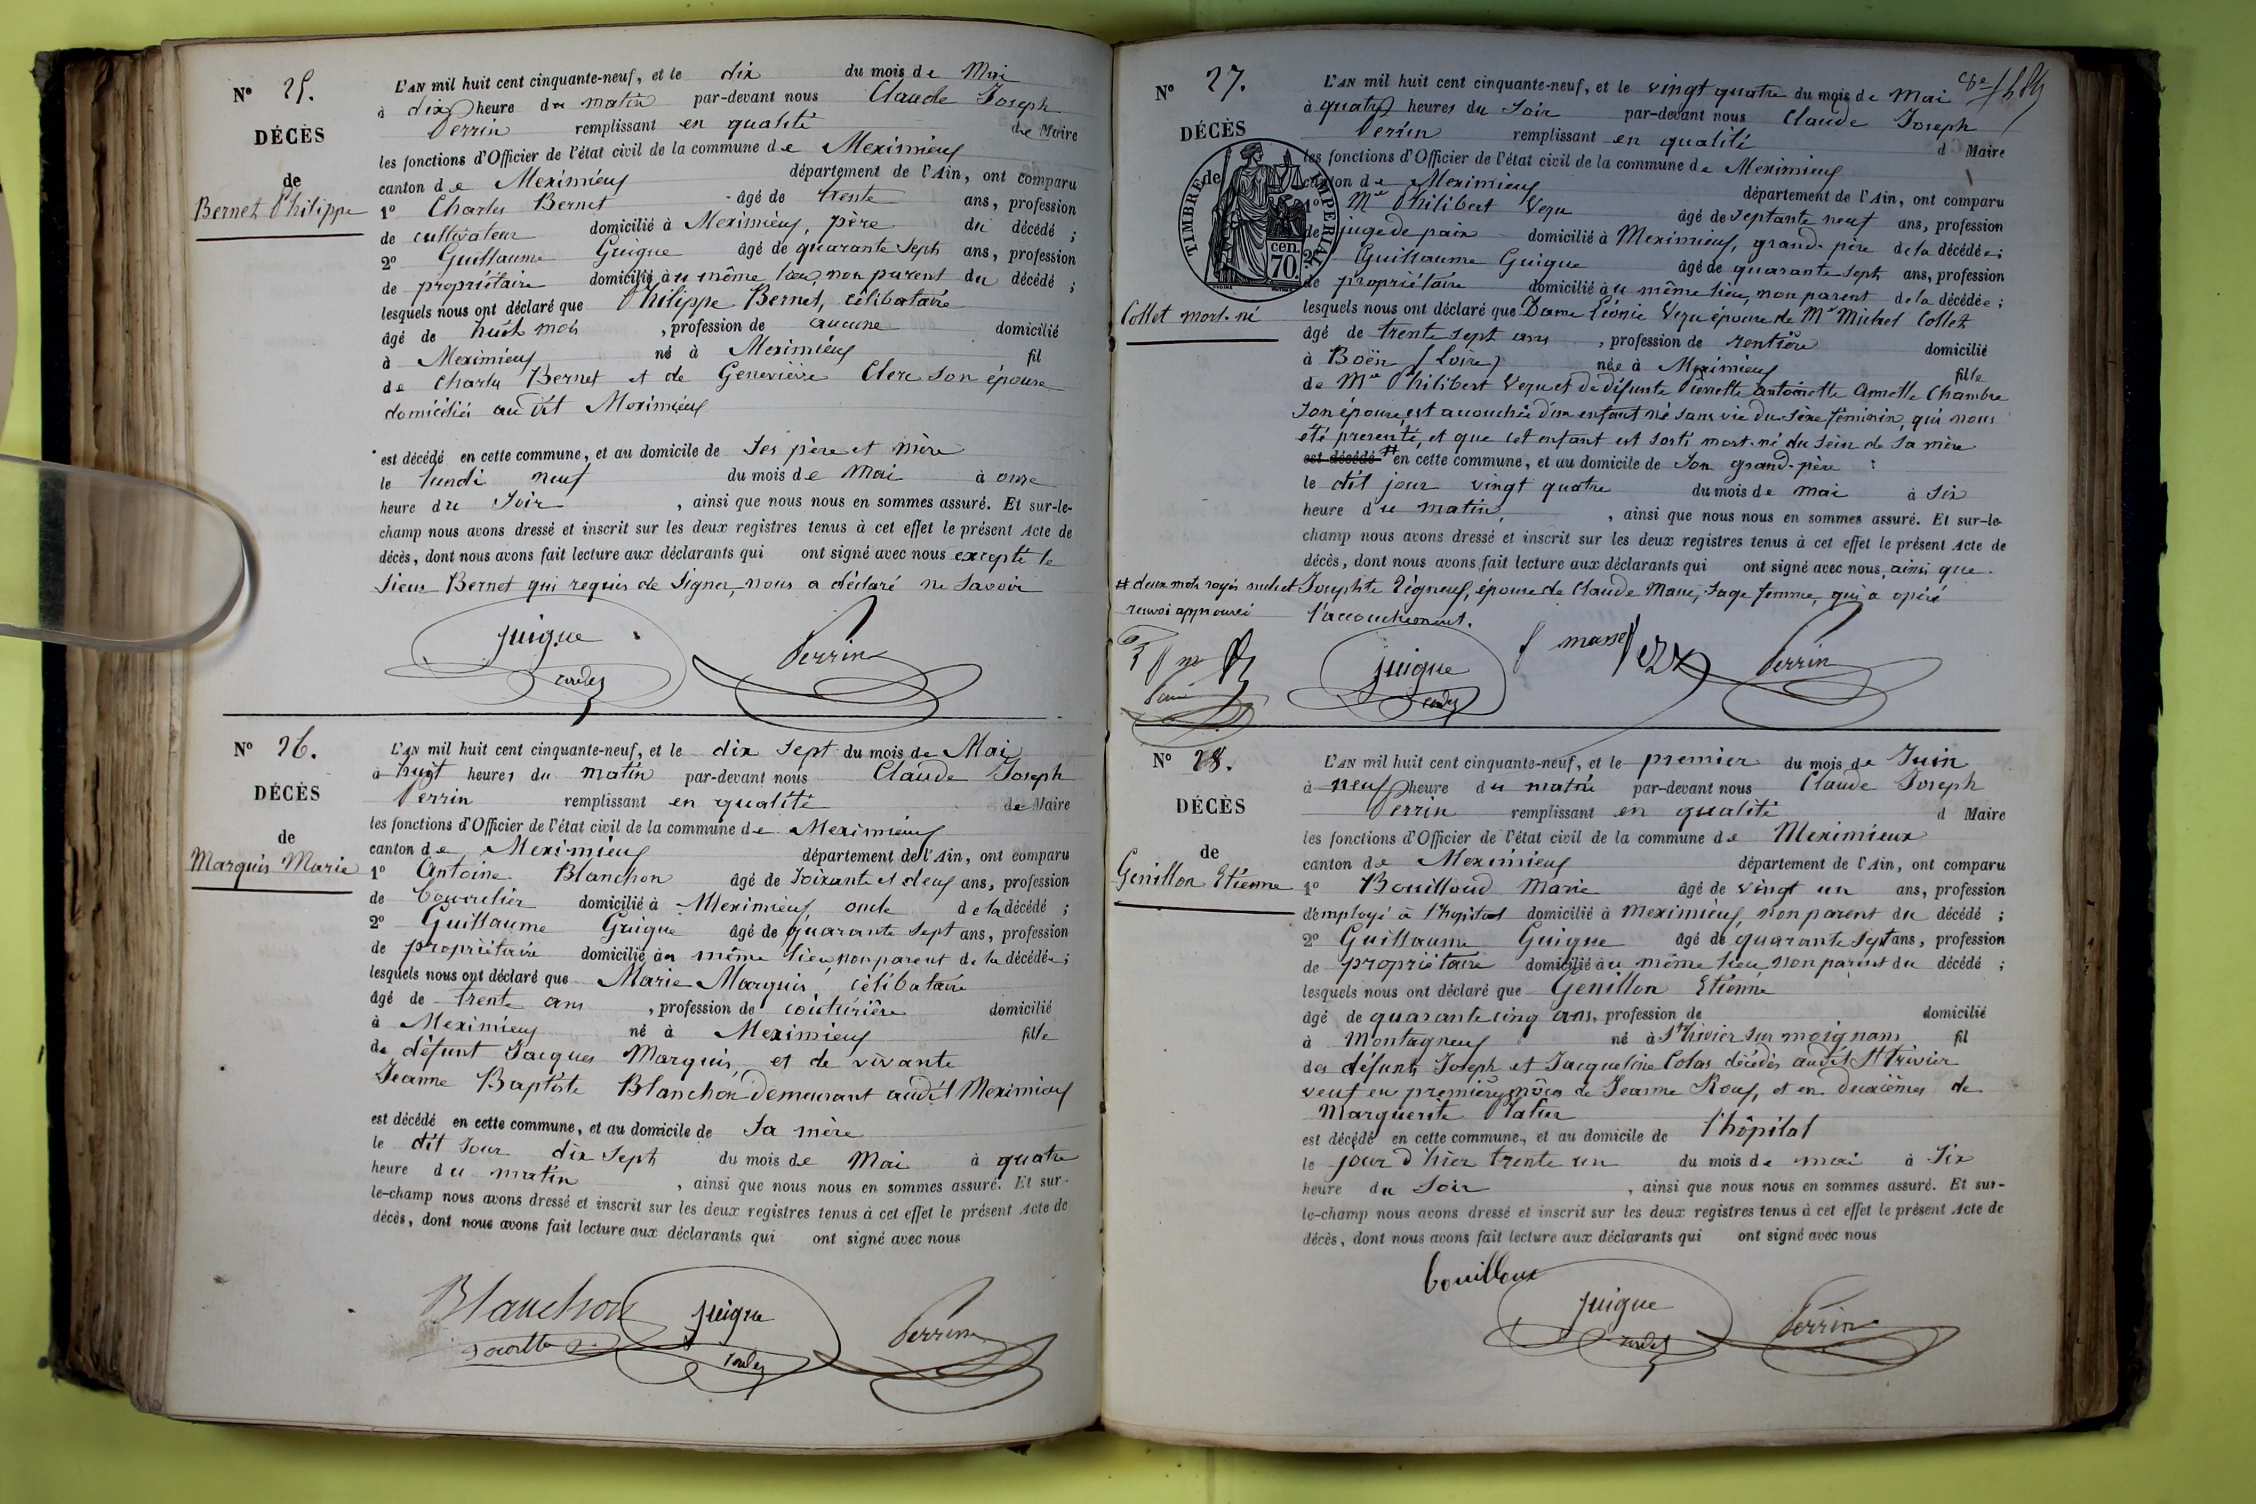 N° 25.
DÉCÈS
de
Bernet Philippe
L'AN mil huit cent cinquante-neuf, et le dix du mois de Mai
à dix heure du matin par-devant nous Claude Joseph
Perrin remplissant en qualité de Maire
les fonctions d'Officier de l'état civil de la commune de Meximieux
canton de Meximieux département de l'Ain, ont comparu
1° Charles Bernet âgé de trente ans, profession
de cultivateur domicilié à Meximieux, père du décédé ;
2° Guillaume Guigue âgé de quarante sept ans, profession
de propriétaire domicilié au même lieu, non parent du décédé ;
lesquels nous ont déclaré que Philippe Bernet, célibataire
âgé de huit mois , profession de aucune domicilié
à Meximieux né à Meximieux fil
de Charles Bernet et de Geneviève Clerc son épouse
domiciliés au dit Meximieux
est décédé en cette commune, et au domicile de ses père et mère
le lundi neuf du mois de Mai à onze
heure du soir , ainsi que nous nous en sommes assuré. Et sur-le-
champ nous avons dressé et inscrit sur les deux registres tenus à cet effet le présent Acte de
décès, dont nous avons fait lecture aux déclarants qui ont signé avec nous excepté le
sieur Bernet qui requis de signer, nous a déclaré ne savoir
guigue
Perrin
N° 26.
DÉCÈS
de
Marquis Marie
L'AN mil huit cent cinquante-neuf, et le dix sept du mois de Mai
à huit heures du matin par-devant nous Claude Joseph
Perrin remplissant en qualité de Maire
les fonctions d'Officier de l'état civil de la commune de Meximieux
canton de Meximieux département de l'Ain, ont comparu
1° Antoine Blanchon âgé de soixante et deux ans, profession
de bourrelier domicilié à Meximieux, oncle de la décédé ;
2° Guillaume Guigue âgé de quarante sept ans, profession
de propriétaire domicilié au même lieu, non parent de la décédée ;
lesquels nous ont déclaré que Marie Marquis, célibataire
âgé de trente ans , profession de couturière domicilié
à Meximieux né à Meximieux fille
de défunt Jacques Marquis, et de vivante
Jeanne Baptiste Blanchon demeurant audit Meximieux
est décédé en cette commune, et au domicile de sa mère
le dit jour dix sept du mois de Mai à quatre
heure du matin , ainsi que nous nous en sommes assuré. Et sur-
le-champ nous avons dressé et inscrit sur les deux registres tenus à cet effet le présent Acte de
décès, dont nous avons fait lecture aux déclarants qui ont signé avec nous
Blanchon
guigue
Perrin
N° 27.
DÉCÈS
de
TIMBRE IMPÉRIAL
70 cen.
Collet mort-né
L'AN mil huit cent cinquante-neuf, et le vingt quatre du mois de Mai
à quatre heures du soir par-devant nous Claude Joseph
Perrin remplissant en qualité d Maire
les fonctions d'Officier de l'état civil de la commune de Meximieux
canton de Meximieux département de l'Ain, ont comparu
1° Philibert Vezu âgé de septante neuf ans, profession
de juge de paix domicilié à Meximieux, grand-père de la décédée ;
2° Guillaume Guigue âgé de quarante sept ans, profession
de propriétaire domicilié au même lieu, non parent de la décédée ;
lesquels nous ont déclaré que Dame Léonie Vezu épouse de Mr Michel Collet
âgé de trente sept ans , profession de rentière domicilié
à Boën (Loire) née à Meximieux fille
de Philibert Vezu et de défunte Pierrette antoinette Chambre
son épouse, est accouchée d'un enfant né sans vie du sexe féminin, qui nous
été presenté, et que cet enfant est sorti mort-né du sein de sa mère
est décédé # en cette commune, et au domicile de son grand-père
le dit jour vingt quatre du mois de mai à six
heure du matin, , ainsi que nous nous en sommes assuré. Et sur-le-
champ nous avons dressé et inscrit sur les deux registres tenus à cet effet le présent Acte de
décès, dont nous avons fait lecture aux déclarants qui ont signé avec nous, ainsi que
Josephte épouse de Claude sage femme, qui a opéré
l'accouchement.
# deux mots rayés nuls et
renvoi approuvés
guigue
Perrin
N° 28.
DÉCÈS
de
Genillon Etienne
L'AN mil huit cent cinquante-neuf, et le premier du mois de Juin
à neuf heure du matin par-devant nous Claude Joseph
Perrin remplissant en qualité d Maire
les fonctions d'Officier de l'état civil de la commune de Meximieux
canton de Meximieux département de l'Ain, ont comparu
1° Bouilloud Marie âgé de vingt un ans, profession
d'employé à l'hôpital domicilié à Meximieux, non parent du décédé ;
2° Guillaume Guigue âgé de quarante sept ans, profession
de propriétaire domicilié au même lieu, non parent du décédé ;
lesquels nous ont déclaré que Genillon Etienne
âgé de quarante cinq ans, profession de domicilié
à Montagneux né à St Trivier sur moignans fil
des défunts Joseph et Jacqueline Colas décédés audit St trivier
veuf en premières nôces de Jeanne Roux, et en deuxièmes de
Marguerite
est décédé en cette commune, et au domicile de l'hôpital
le jour d'hier trente un du mois de mai à six
heure du soir , ainsi que nous nous en sommes assuré. Et sur-
le-champ nous avons dressé et inscrit sur les deux registres tenus à cet effet le présent Acte de
décès, dont nous avons fait lecture aux déclarants qui ont signé avec nous
guigue
Perrin